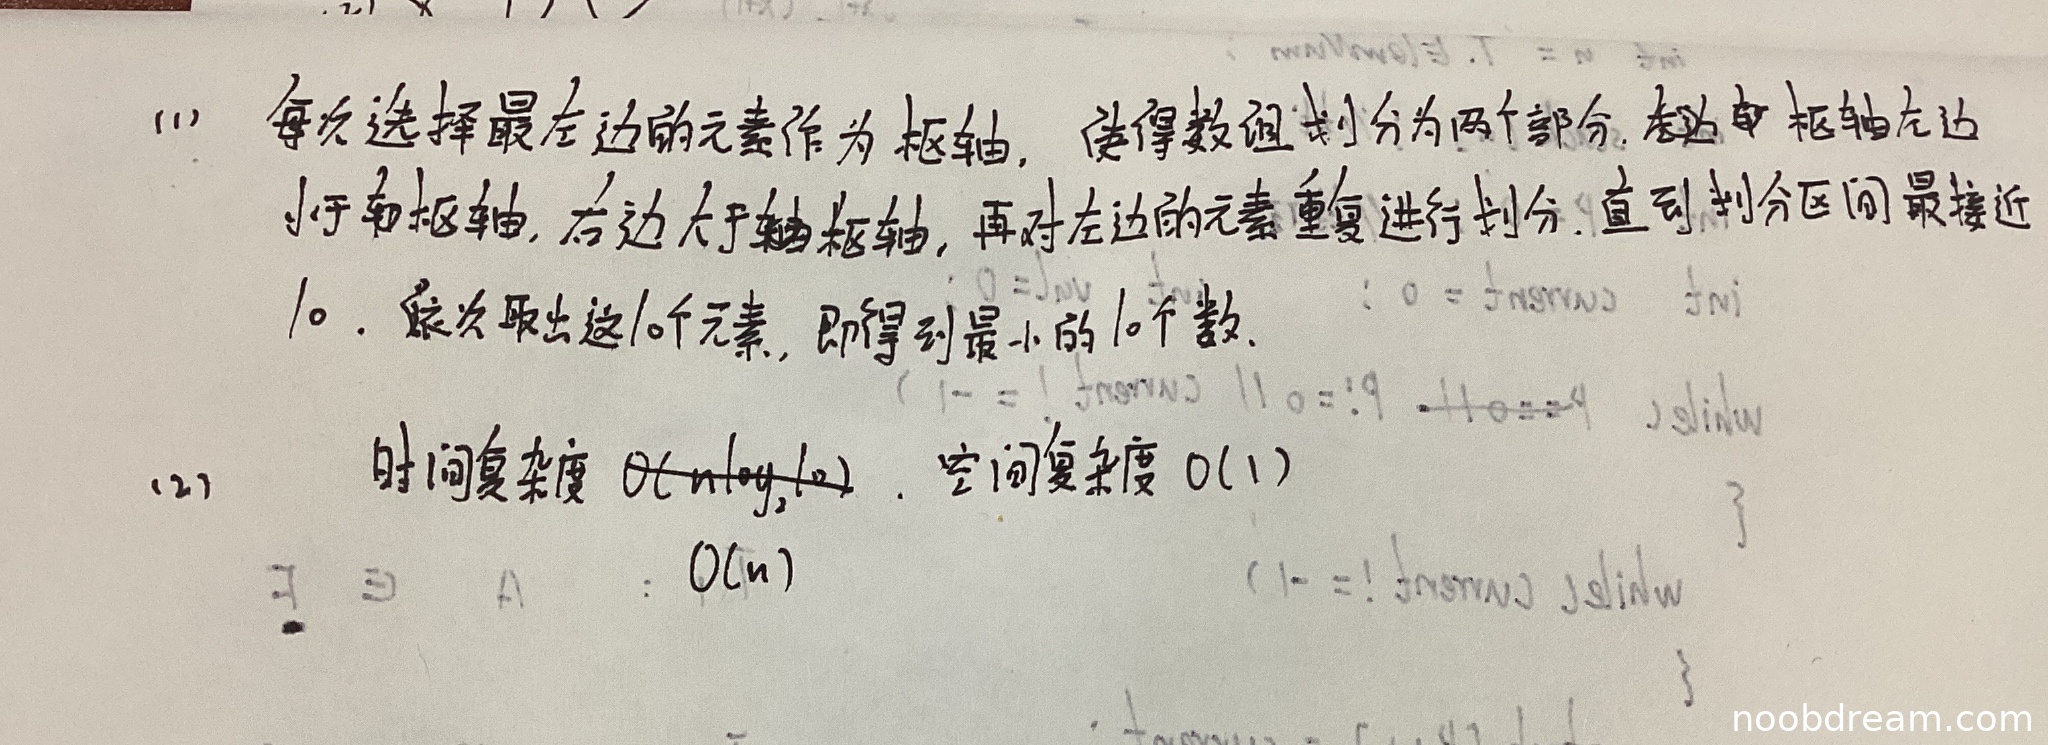 (1) 每次选择最左边的元素作为枢轴, 使得数组划分为两个部分. 枢轴左边
小于枢轴, 右边大于枢轴, 再对左边的元素重复进行划分. 直到划分区间最接近
10. 依次取出这10个元素, 即得到最小的10个数.
(2) 时间复杂度 O(nlog₂10). 空间复杂度 O(1)
O(n)
int n = T.ElemNum;
int current = 0; int val = 0;
while( P==0 || P!=0 || current != -1)
{
while( current != -1)
: A E F
{
noobdream.com